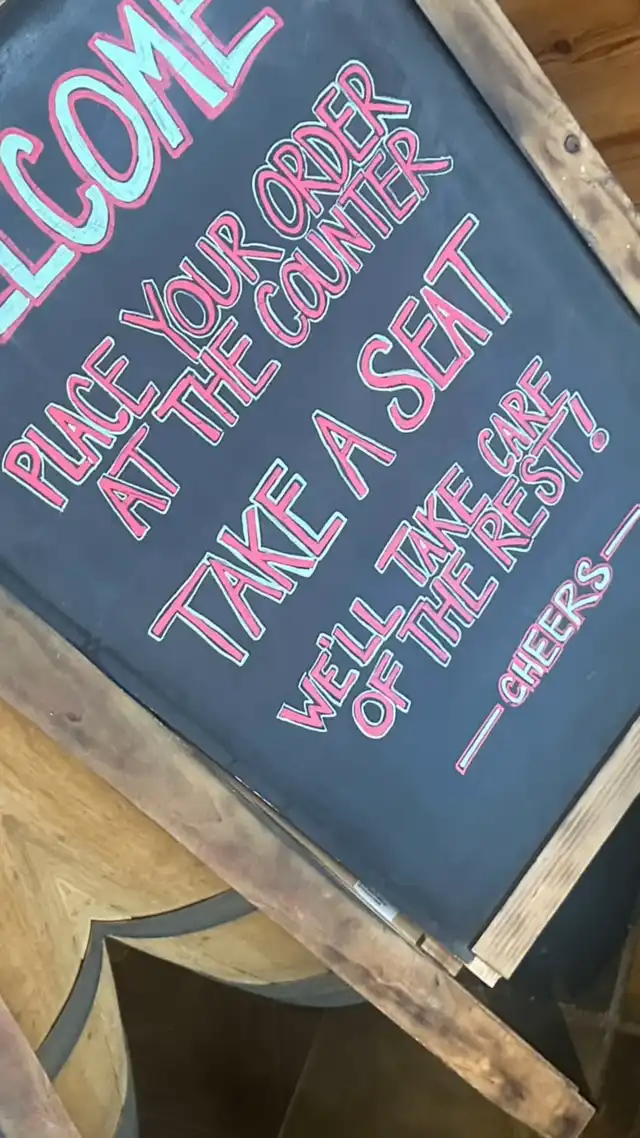 WELCOME
PLACE YOUR ORDER
AT THE COUNTER
TAKE A SEAT
WE'LL TAKE CARE
OF THE REST!
— CHEERS —